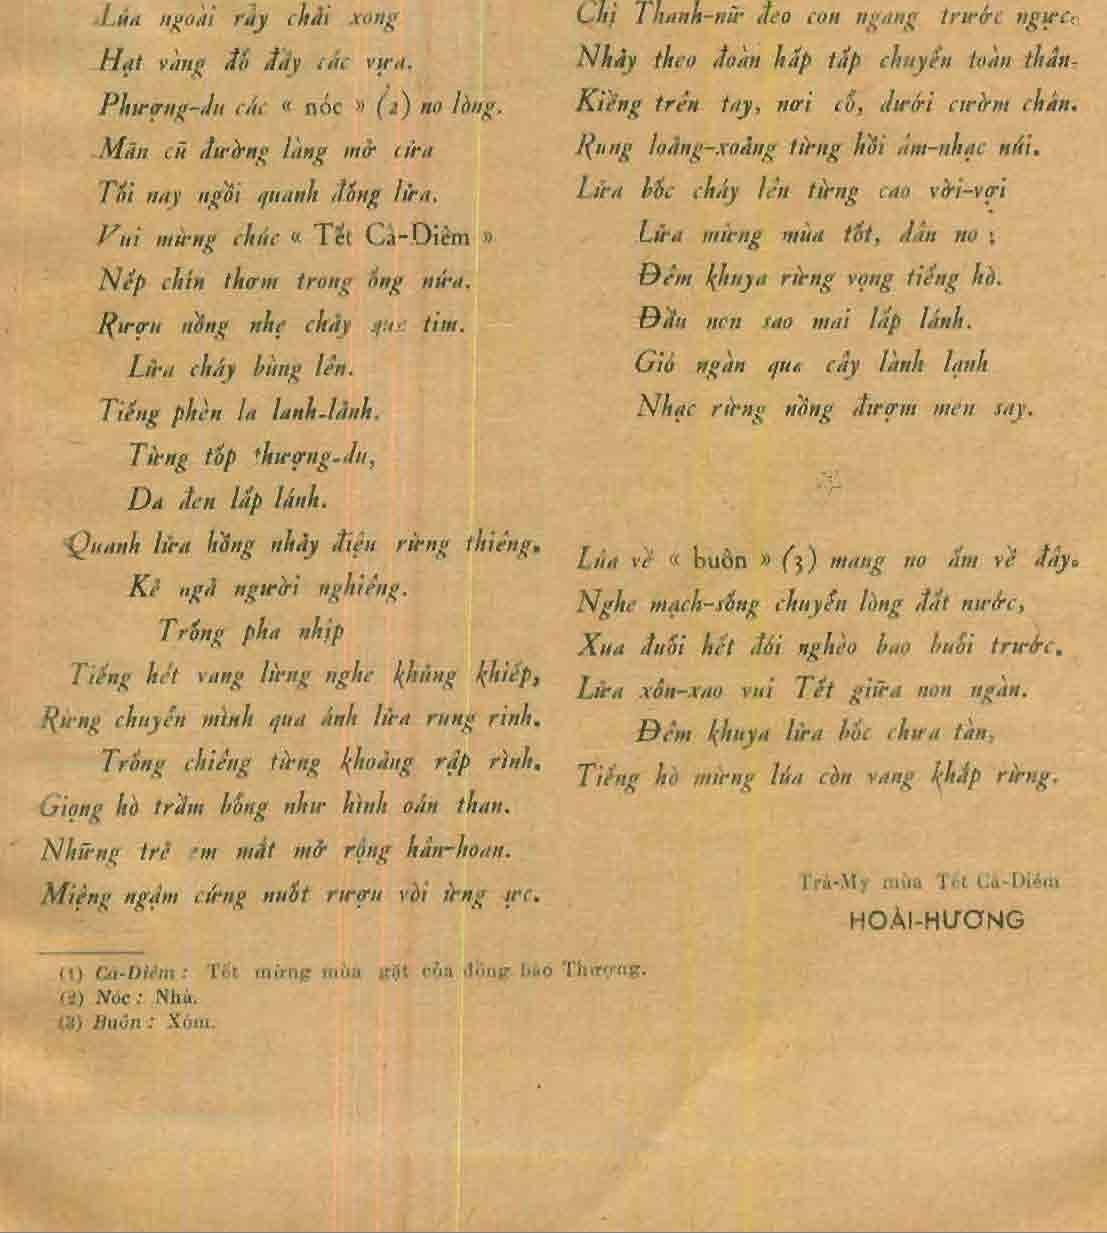 Lúa ngoài rẫy chải xong
Hạt vàng đổ đầy các vựa.
Phượng-du các « nóc » (2) no lòng.
Mãn cũ đường làng mở cửa
Tối nay ngồi quanh đống lửa.
Vui mừng chúc « Tết Cà-Diêm »
Nếp chín thơm trong ống nứa.
Rượu nồng nhẹ chảy qua tim.
Lửa cháy bùng lên.
Tiếng phèn la lanh-lảnh.
Từng tốp thượng-du,
Da đen lấp lánh.
Quanh lửa hồng nhảy điệu rừng thiêng.
Kẻ ngả người nghiêng.
Trống pha nhịp
Tiếng hét vang lừng nghe khủng khiếp,
Rừng chuyển mình qua ánh lửa rung rinh.
Trống chiêng từng khoảng rập rình.
Giọng hò trầm bổng như hình oán than.
Những trẻ em mắt mở rộng hân-hoan.
Miệng ngậm cứng nuốt rượu vòi ừng ực.
Chị Thanh-nữ đeo con ngang trước ngực.
Nhảy theo đoàn hấp tấp chuyển toàn thân.
Kiềng trên tay, nơi cổ, dưới cườm chân.
Rung loảng-xoảng từng hồi âm-nhạc núi.
Lửa bốc cháy lên từng cao vời-vợi
Lửa mừng mùa tốt, dân no ;
Đêm khuya rừng vọng tiếng hò.
Đầu non sao mai lấp lánh.
Gió ngàn qua cây lành lạnh
Nhạc rừng nồng đượm men say.
Lúa về « buôn » (3) mang no ấm về đây.
Nghe mạch-sống chuyển lòng đất nước,
Xua đuổi hết đói nghèo bao buổi trước.
Lửa xôn-xao vui Tết giữa non ngàn.
Đêm khuya lửa bốc chưa tàn,
Tiếng hò mừng lúa còn vang khắp rừng.
Trà-My mùa Tết Cà-Diêm
HOÀI-HƯƠNG
(1) Cà-Diêm : Tết mừng mùa gặt của đồng bào Thượng.
(2) Nóc : Nhà.
(3) Buôn : Xóm.